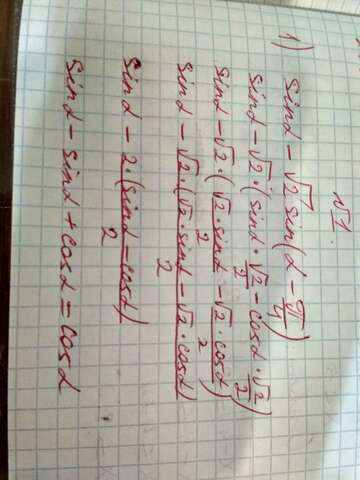 №1.
1) sinα - √2 sin(α - π/4)
sinα - √2·(sinα · √2/2 - cosα · √2/2)
sinα - √2·(√2·sinα/2 - √2·cosα/2)
sinα - √2·(√2·sinα - √2·cosα)/2
sinα - 2·(sinα - cosα)/2
sinα - sinα + cosα = cosα